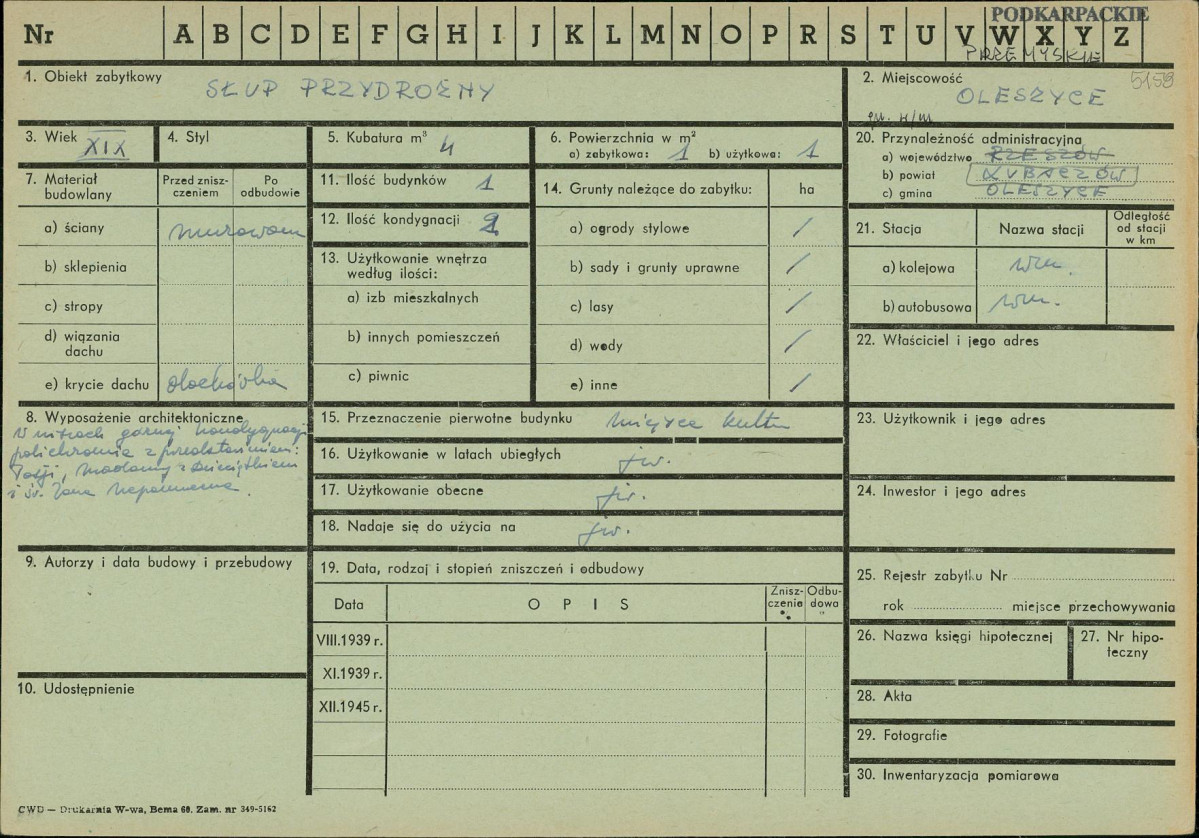 PODKARPACKIE
Nr A B C D E F G H I J K L M N O P R S T U V W X Y Z
PRZEMYSKIE
1. Obiekt zabytkowy
SŁUP PRZYDROŻNY
2. Miejscowość
5159
OLESZYCE
3. Wiek XIX
4. Styl
5. Kubatura m³ 4
6. Powierzchnia w m²
a) zabytkowa: 1 b) użytkowa: 1
20. Przynależność administracyjna
a) województwo RZESZÓW
b) powiat LUBACZÓW
c) gmina OLESZYCE
7. Materiał budowlany
Przed znisz-
czeniem
Po
odbudowie
a) ściany murowane
b) sklepienia
c) stropy
d) wiązania
dachu
e) krycie dachu dachówka
11. Ilość budynków 1
12. Ilość kondygnacji 2
13. Użytkowanie wnętrza
według ilości:
a) izb mieszkalnych
b) innych pomieszczeń
c) piwnic
14. Grunty należące do zabytku: ha
a) ogrody stylowe /
b) sady i grunty uprawne /
c) lasy /
d) wody /
e) inne /
21. Stacja
Nazwa stacji
Odległość
od stacji
w km
a) kolejowa wm.
b) autobusowa wm.
22. Właściciel i jego adres
8. Wyposażenie architektoniczne
W niszach górnej kondygnacji
polichromia z przedstawieniem:
Madonny z Dzieciątkiem
i św. Jana Nepomucena.
15. Przeznaczenie pierwotne budynku miejsce kultu
16. Użytkowanie w latach ubiegłych jw.
17. Użytkowanie obecne jw.
18. Nadaje się do użycia na jw.
23. Użytkownik i jego adres
24. Inwestor i jego adres
9. Autorzy i data budowy i przebudowy
19. Data, rodzaj i stopień zniszczeń i odbudowy
Data
OPIS
Znisz-
czenia
%
Odbu-
dowa
"
VIII.1939 r.
XI.1939 r.
XII.1945 r.
25. Rejestr zabytku Nr
rok miejsce przechowywania
26. Nazwa księgi hipotecznej
27. Nr hipo-
teczny
10. Udostępnienie
28. Akta
29. Fotografie
30. Inwentaryzacja pomiarowa
CWD — Drukarnia W-wa, Bema 60. Zam. nr 349-5162